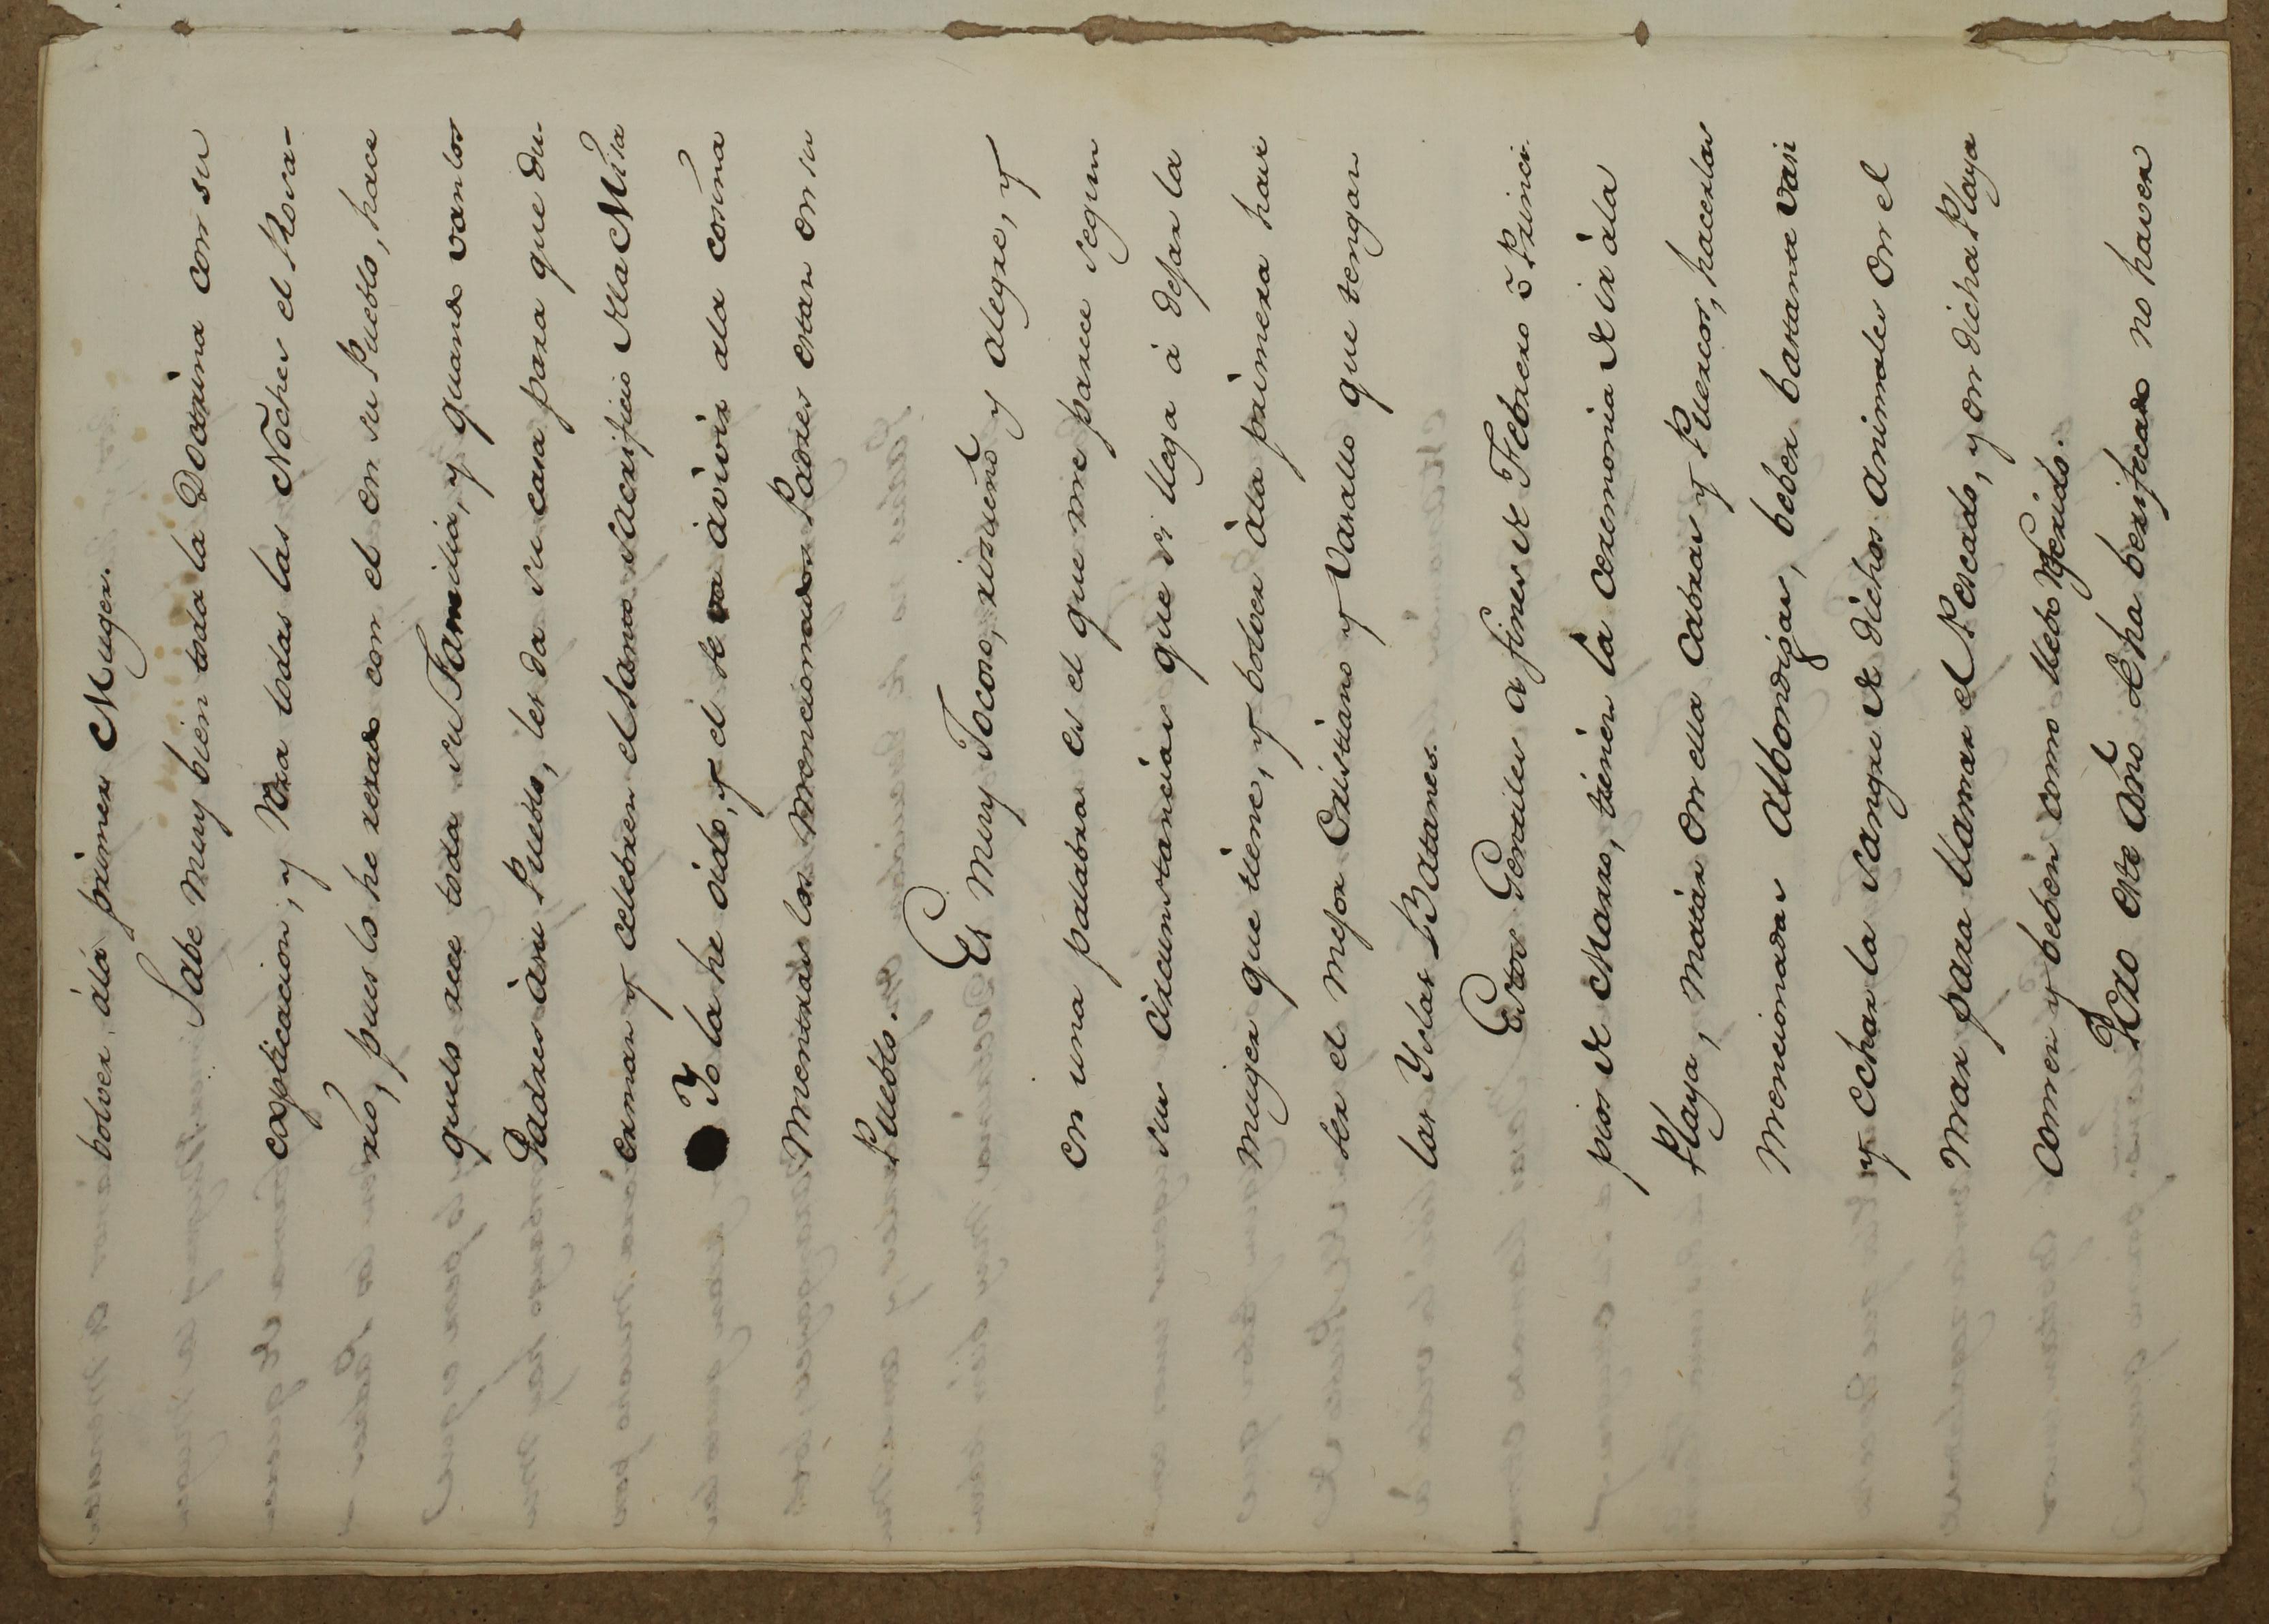 bolver álá primera Muger.
Sabe muy bien toda la Doctrina con su
explicacion, y Reza todas las Noches el Rosa-
rio, pues lo he rezado con el en su Pueblo, hace
que lo rece toda su Familia, y quando van los
Padres àsu Pueblo, les da su casa para que du-
erman y celebren el Santo Sacrificio dela Misa
Yo la he oido, y el se va àvivir ala cosina
mientras los mencionados Padres estan en su
Pueblo.
Es muy Jocoso, risueño y alegre, y
en una palabra es el que me parece segun
sus circunstancias que si llega à dexar la
muger que tiene, y bolver àla primera hará
ser el mejor Cristiano y Vasallo que tengan
las Yslas Batanes.
Estos Gentiles a fines de Febrero ò Princi-
pios de Marzo, tienen la ceremonia de ir àla
Playa, matàn en ella cabras y Puercos, hacerlas
mencionadas Albondigas, beber bastante vasi
y echan la sangre de dichos animales en el
mar para llamar el Pescado, y en dicha Playa
comen y beben como llebo Referido.
Pero este año se ha berificado no haver